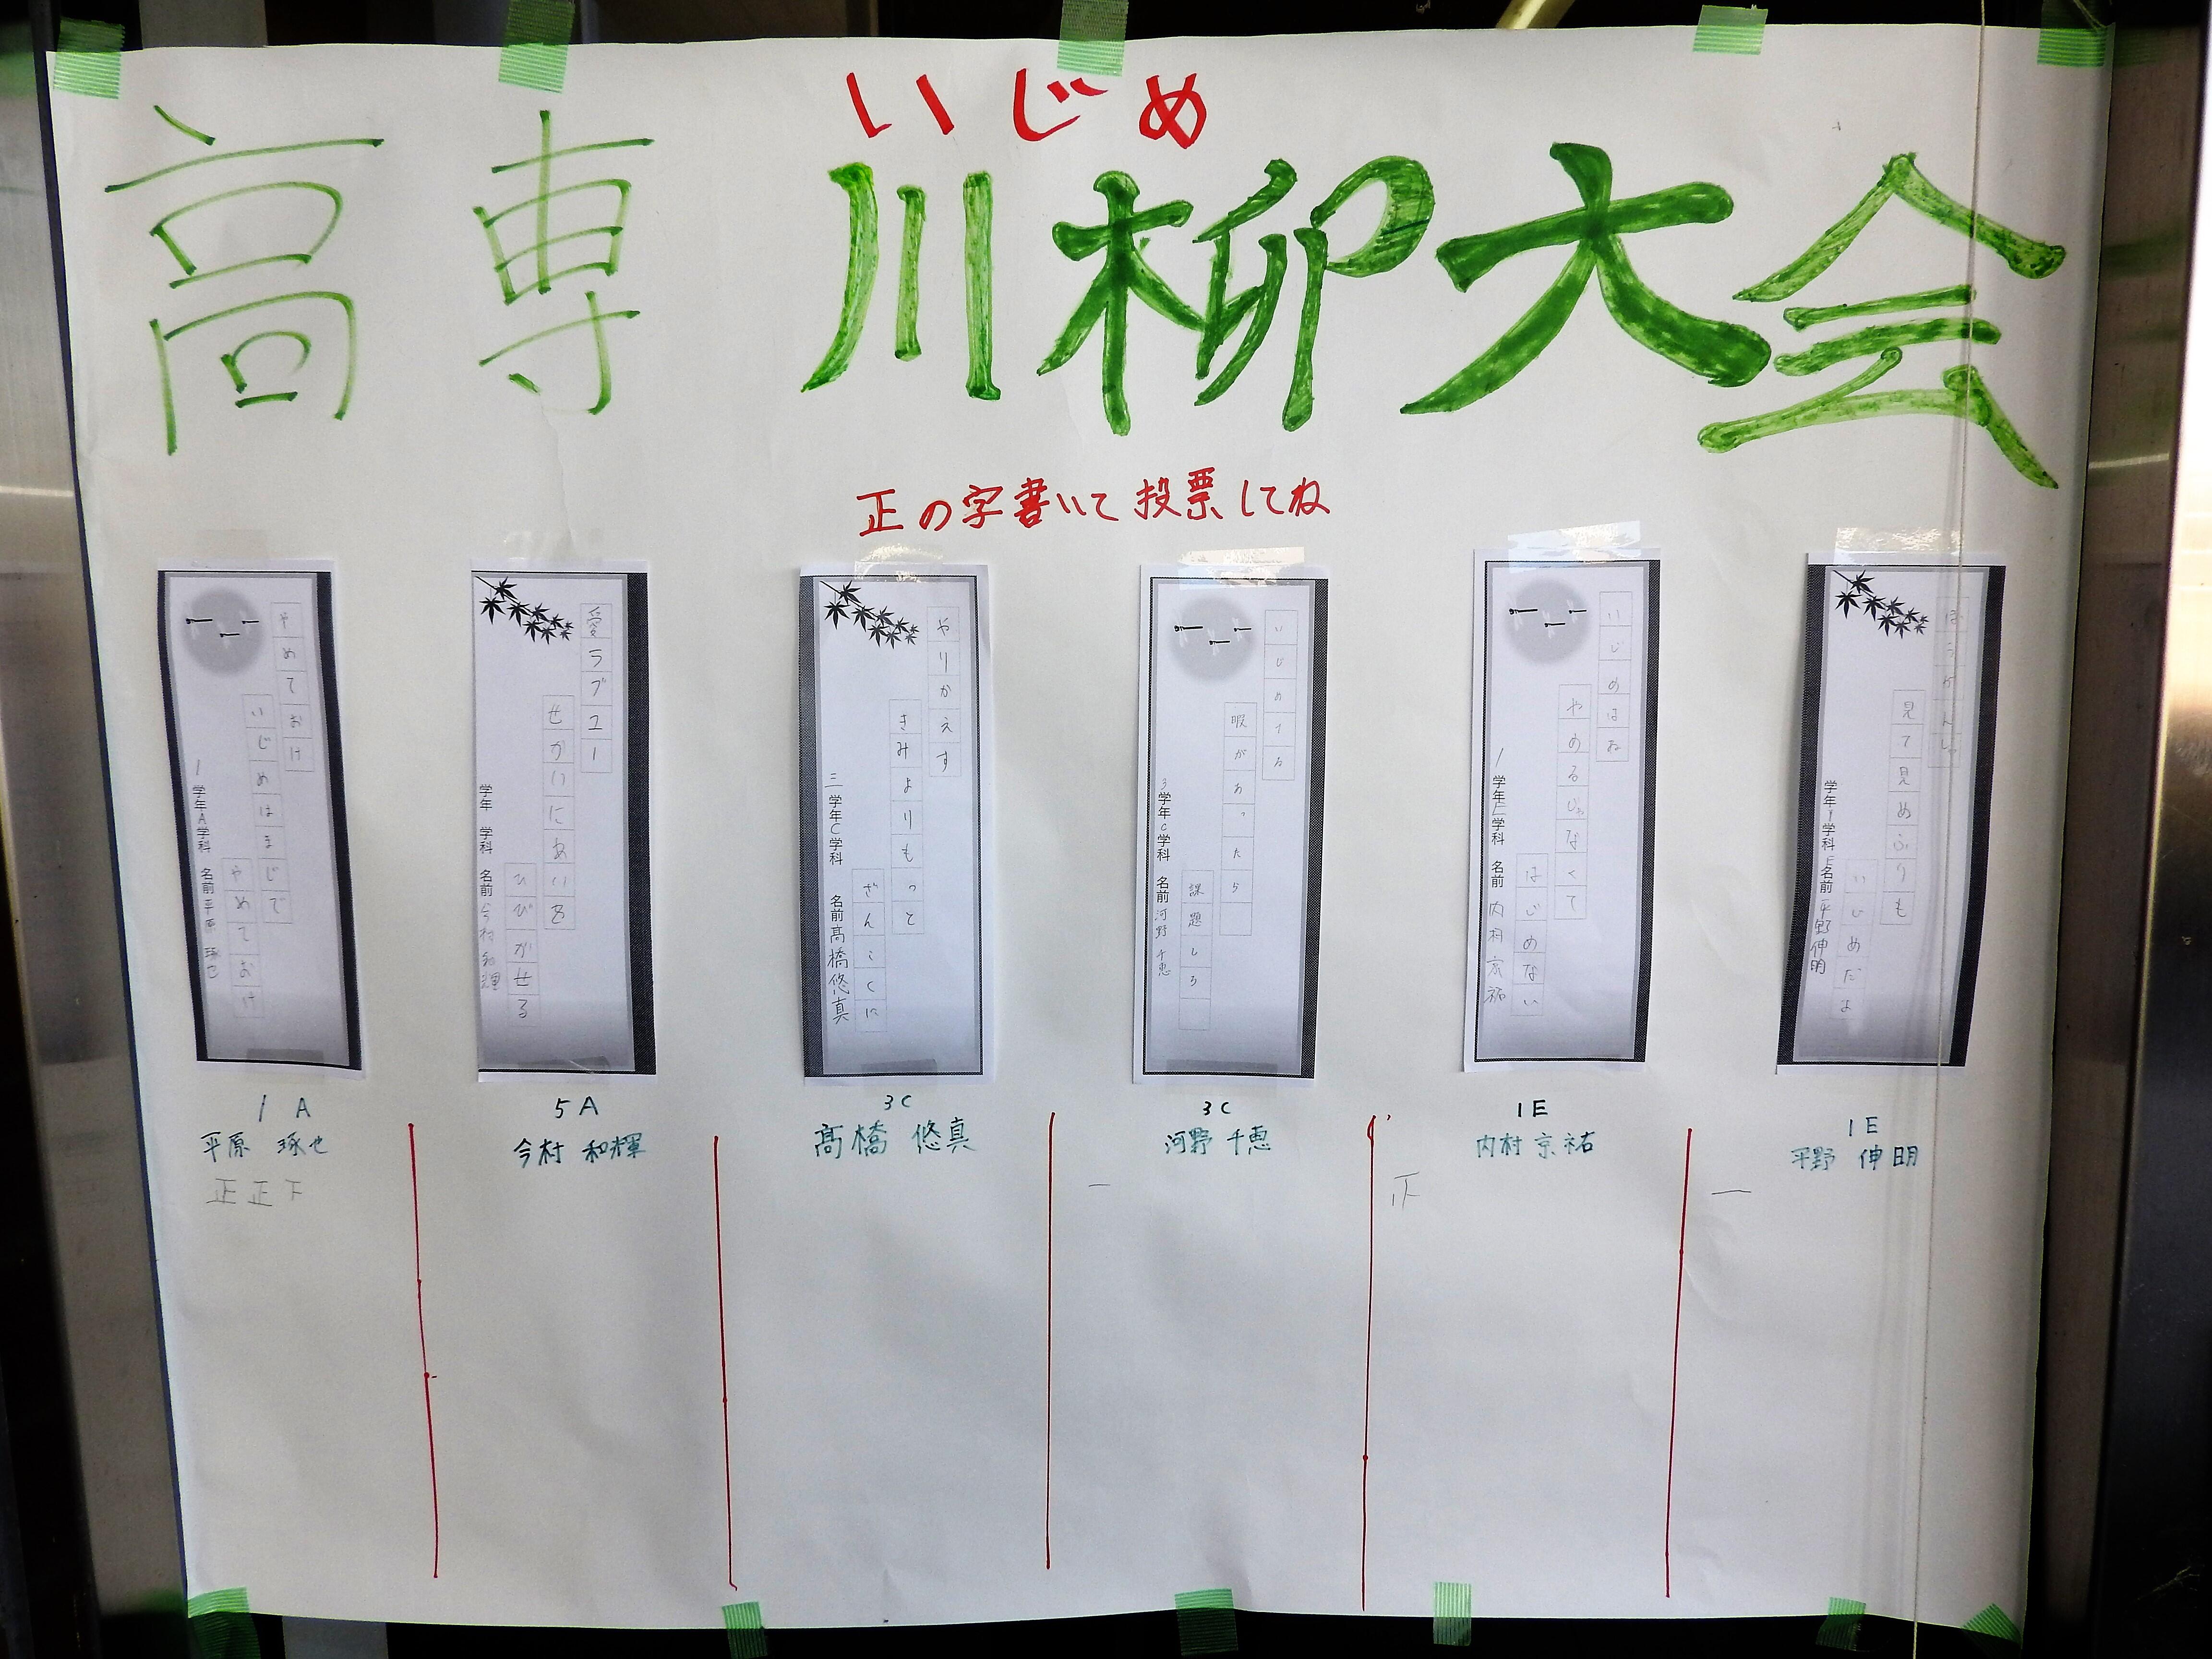 いじめ
高専 川柳大会
正の字書いて投票してね
やめておけ
いじめはまじで
やめておけ
1学年A学科 名前 平原 琢也
愛ラブユー
せかいにあいを
ひびかせる
学年 学科 名前 今村 和輝
やりかえす
きみよりもっと
ざんこくに
三学年C学科 名前 髙橋悠真
いじめする
暇があったら
課題しろ
3学年C学科 名前 河野 千恵
いじめはね
やめるじゃなくて
はじめない
1学年E学科 名前 内村 京祐
ぼうかんしゃ
見て見ぬふりも
いじめだよ
学年1学科E名前 平野伸明
1A
平原 琢也
正正下
5A
今村 和輝
3C
髙橋 悠真
3C
河野 千恵
一
1E
内村 京祐
1E
平野 伸明
一